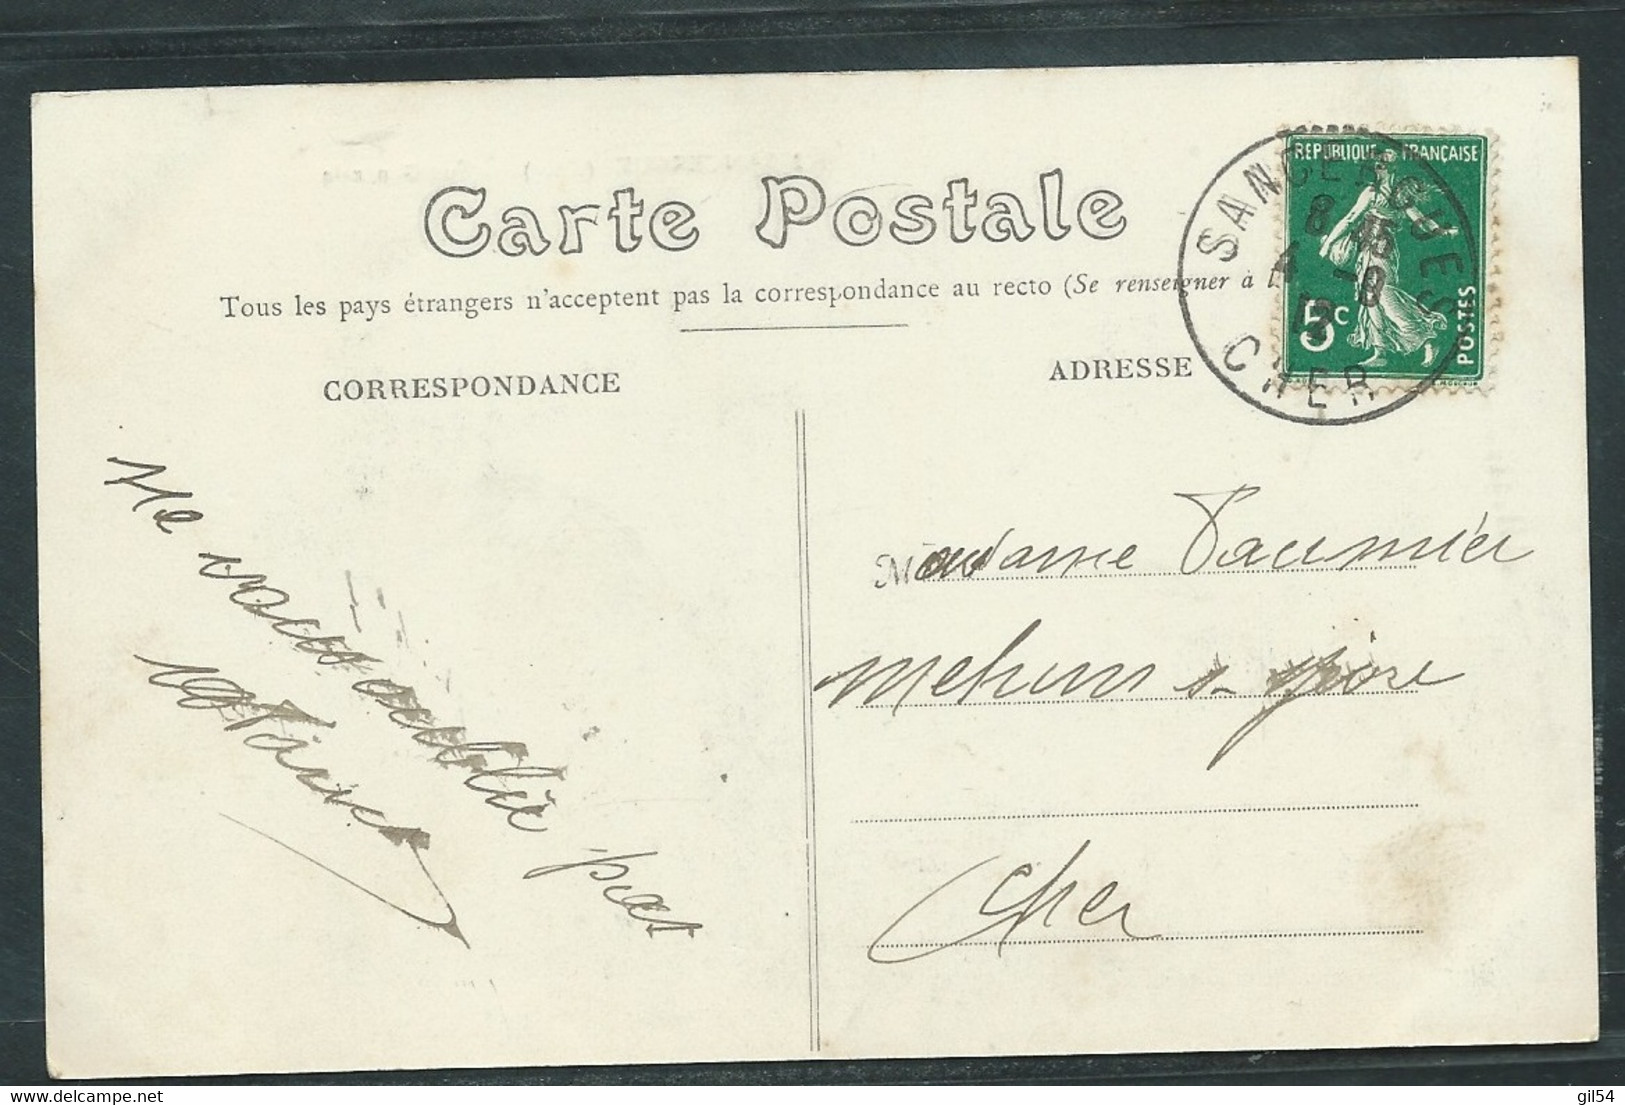 Carte Postale
Tous les pays étrangers n'acceptent pas la correspondance au recto (Se renseigner à l
CORRESPONDANCE
ADRESSE
REPUBLIQUE FRANÇAISE
5c
POSTES
SANCERGUES
8 15
4 - 8
CHER
Ne vous oublie pas
Madame Paumier
Mehun s- yèvre
Cher
gil54